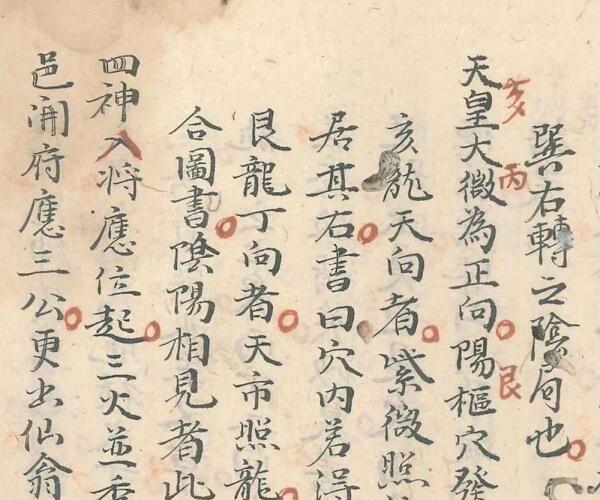 巽右轉之陰局也
天皇亥大微丙為正向陽樞艮穴發
亥龍天向者紫微照
居其右書曰穴内若得
艮龍丁向者天市照龍
合圖書陰陽相見者此
四神八將應位起三火並秀
邑開府應三公更出仙翁